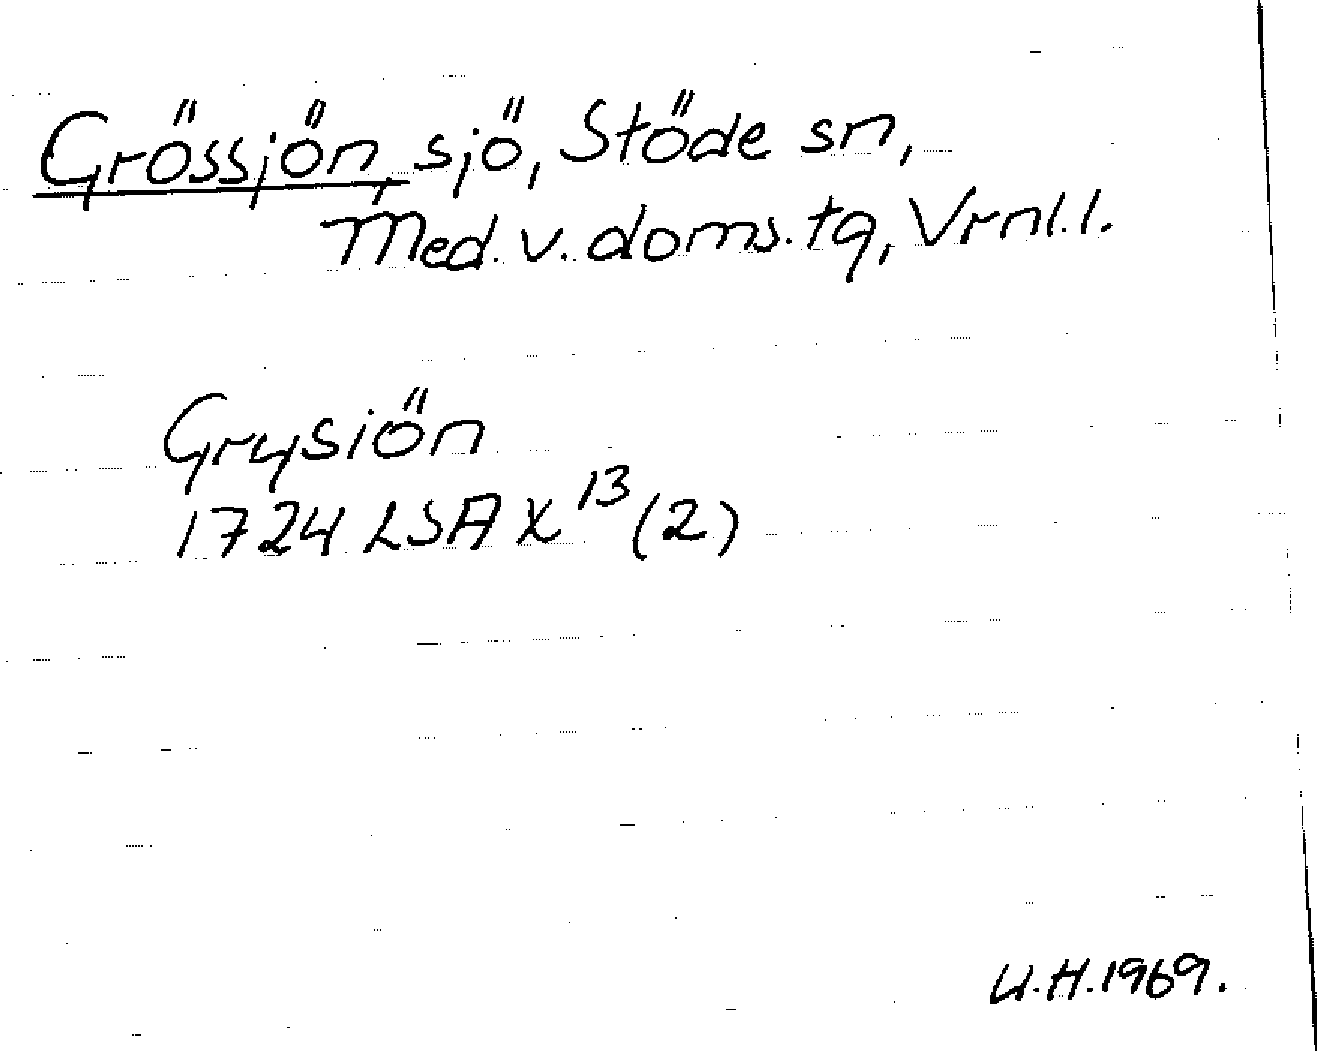 Grössjön, sjö, Stöde sn,
Med. v. doms. tg, Vrnl. l.
Grysiön
1724 LSA X¹³ (2)
U.H. 1969.